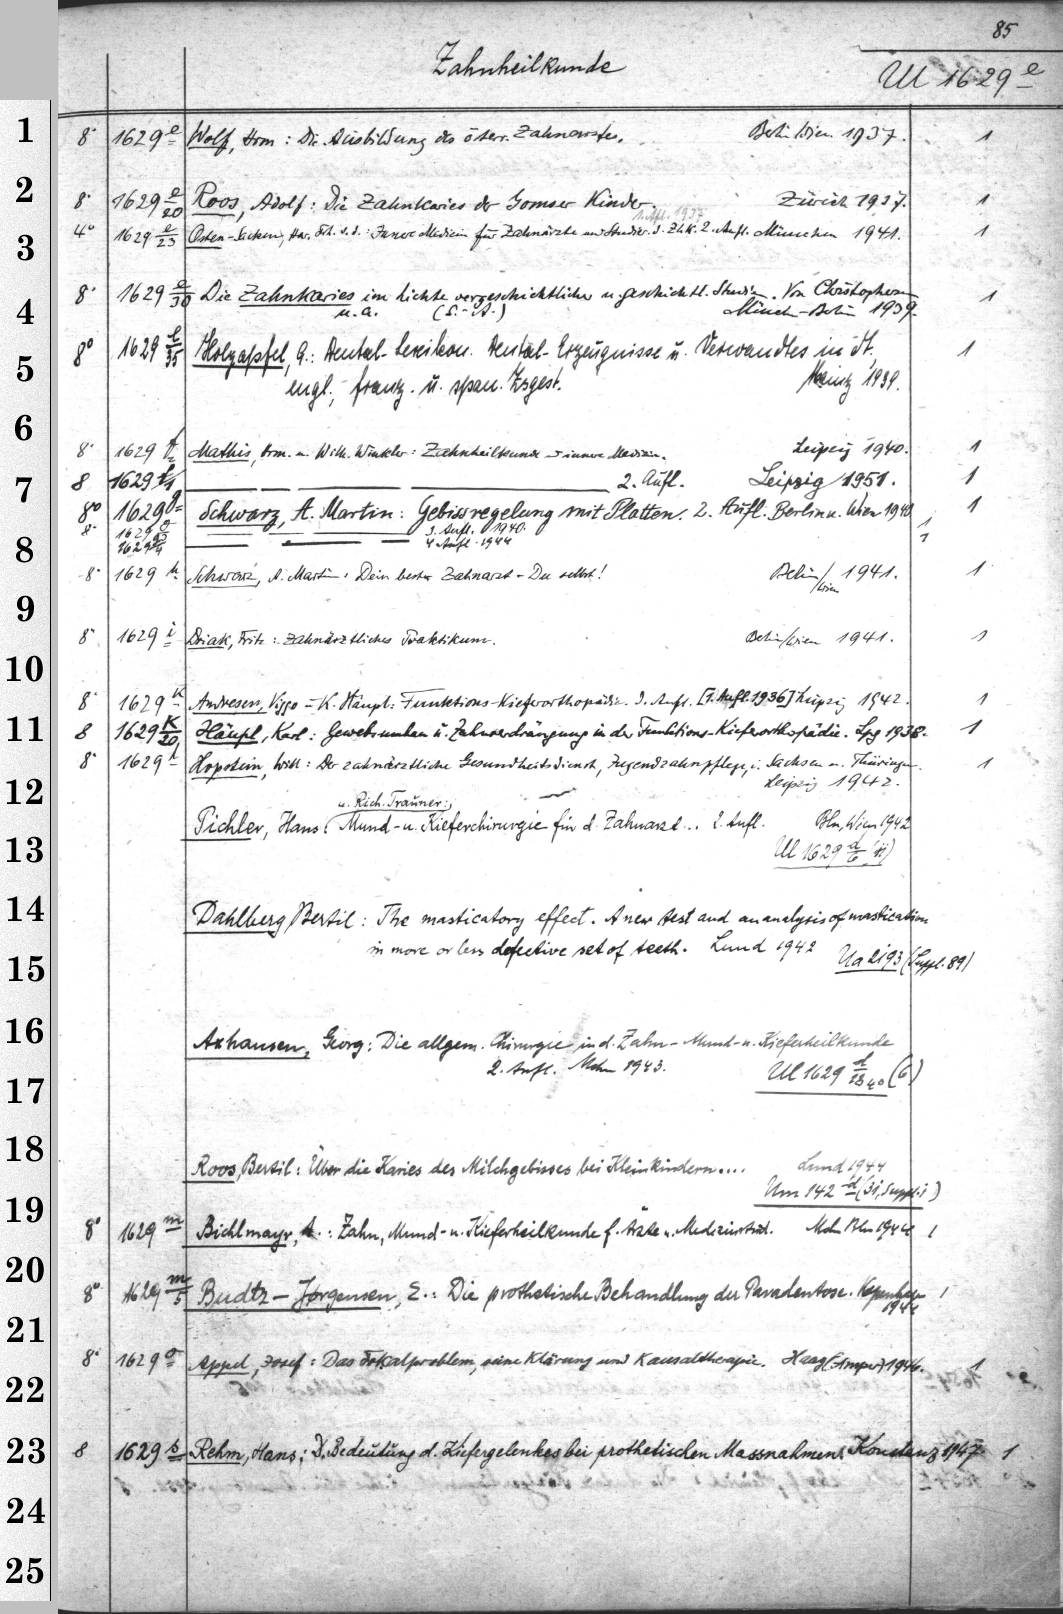 85
Zahnheilkunde
Ul 1629 e
1 8° 1629 e Wolf, Hrm: Die Ausbildung des österr. Zahnarztes. Berlin Wien 1937. 1
2 8° 1629 e/20 Roos, Adolf: Die Zahnkaries der Gomser Kinder. Zürich 1937. 1
1. Aufl. 1937
3 4° 1629 e/23 Osten-Sacken, : Innere Medizin für Zahnärzte und Studier. d. Zhk. 2. Aufl. München 1941. 1
8° 1629 e/30 Die Zahnkaries im Lichte vorgeschichtlicher u. geschichtl. Studien. Von Christophersen 1
4 u. a. München-Berlin 1939.
8° 1629 e/35 Holzapfel, G.: Dental-Lexikon. Dental-Erzeugnisse u. Verwandtes in dt. 1
5 engl., franz. u. span. Zsgest. Mainz 1939.
6
8° 1629 f Mathis, Hrm. u. Wilh. Winkler: Zahnheilkunde u innere Medizin. Leipzig 1940. 1
7 8 1629 f/1 — — — 2. Aufl. Leipzig 1951. 1
8° 1629 g Schwarz, A. Martin: Gebissregelung mit Platten. 2. Aufl. Berlin u. Wien 1940 1
8° 1629 g — — — 3. Aufl. 1940. 1
8 1629 g/4 4. Aufl. 1944 1
8° 1629 h Schwarz, A. Martin: Dein bester Zahnarzt - Du selbst! Berlin/Wien 1941. 1
9
8° 1629 i Driak, Fritz: Zahnärztliches Praktikum. Berlin/Wien 1941. 1
10
8° 1629 k Andresen, Viggo - K. Häupl: Funktions-Kieferorthopädie. 3. Aufl. [1. Aufl. 1936] Leipzig 1942. 1
11 8 1629 K/20 Häupl, Karl: Gewebsumbau u. Zahnverdrängung in der Funktions-Kieferorthopädie. Lpg 1938. 1
8° 1629 l Hopstein, Willi: Der zahnärztliche Gesundheitsdienst, Jugendzahnpflege, i. Sachsen u. Thüringen. 1
12 Leipzig 1942.
u. Rich. Trauner:
Pichler, Hans: Mund- u. Kieferchirurgie für d. Zahnarzt .. 2. Aufl. Bln, Wien 1942
13 Ul 1629 d/6 (ii)
14 Dahlberg Bertil: The masticatory effect. A new test and an analysis of mastication
in more or less defective set of teeth. Lund 1942 Ua 2193 (Suppl. 89)
15
16 Axhausen, Georg: Die allgem. Chirurgie in d. Zahn- Mund- u. Kieferheilkunde
2. Aufl. Mchn 1943. Ul 1629 d/23 4° (6)
17
18 Roos, Bertil: Über die Karies des Milchgebisses bei Kleinkindern.... Lund 1944
Um 142 d (31, Suppl. i)
19 8° 1629 m Bichlmayr, A.: Zahn, Mund- u. Kieferheilkunde f. Ärzte u. Medizinstud. Mchn Bln 1944 1
20 8° 1629 m/5 Budtz-Jørgensen, E.: Die prothetische Behandlung der Paradentose. Kopenhagen 1
1944
21
8° 1629 o Appel, Josef: Das Fokalproblem, seine Klärung und Kausaltherapie. Haag (Amper) 1946. 1
22
23 8 1629 p Rehm, Hans: D. Bedeutung d. Kiefergelenkes bei prothetischen Massnahmen. Konstanz 1947 1
24
25